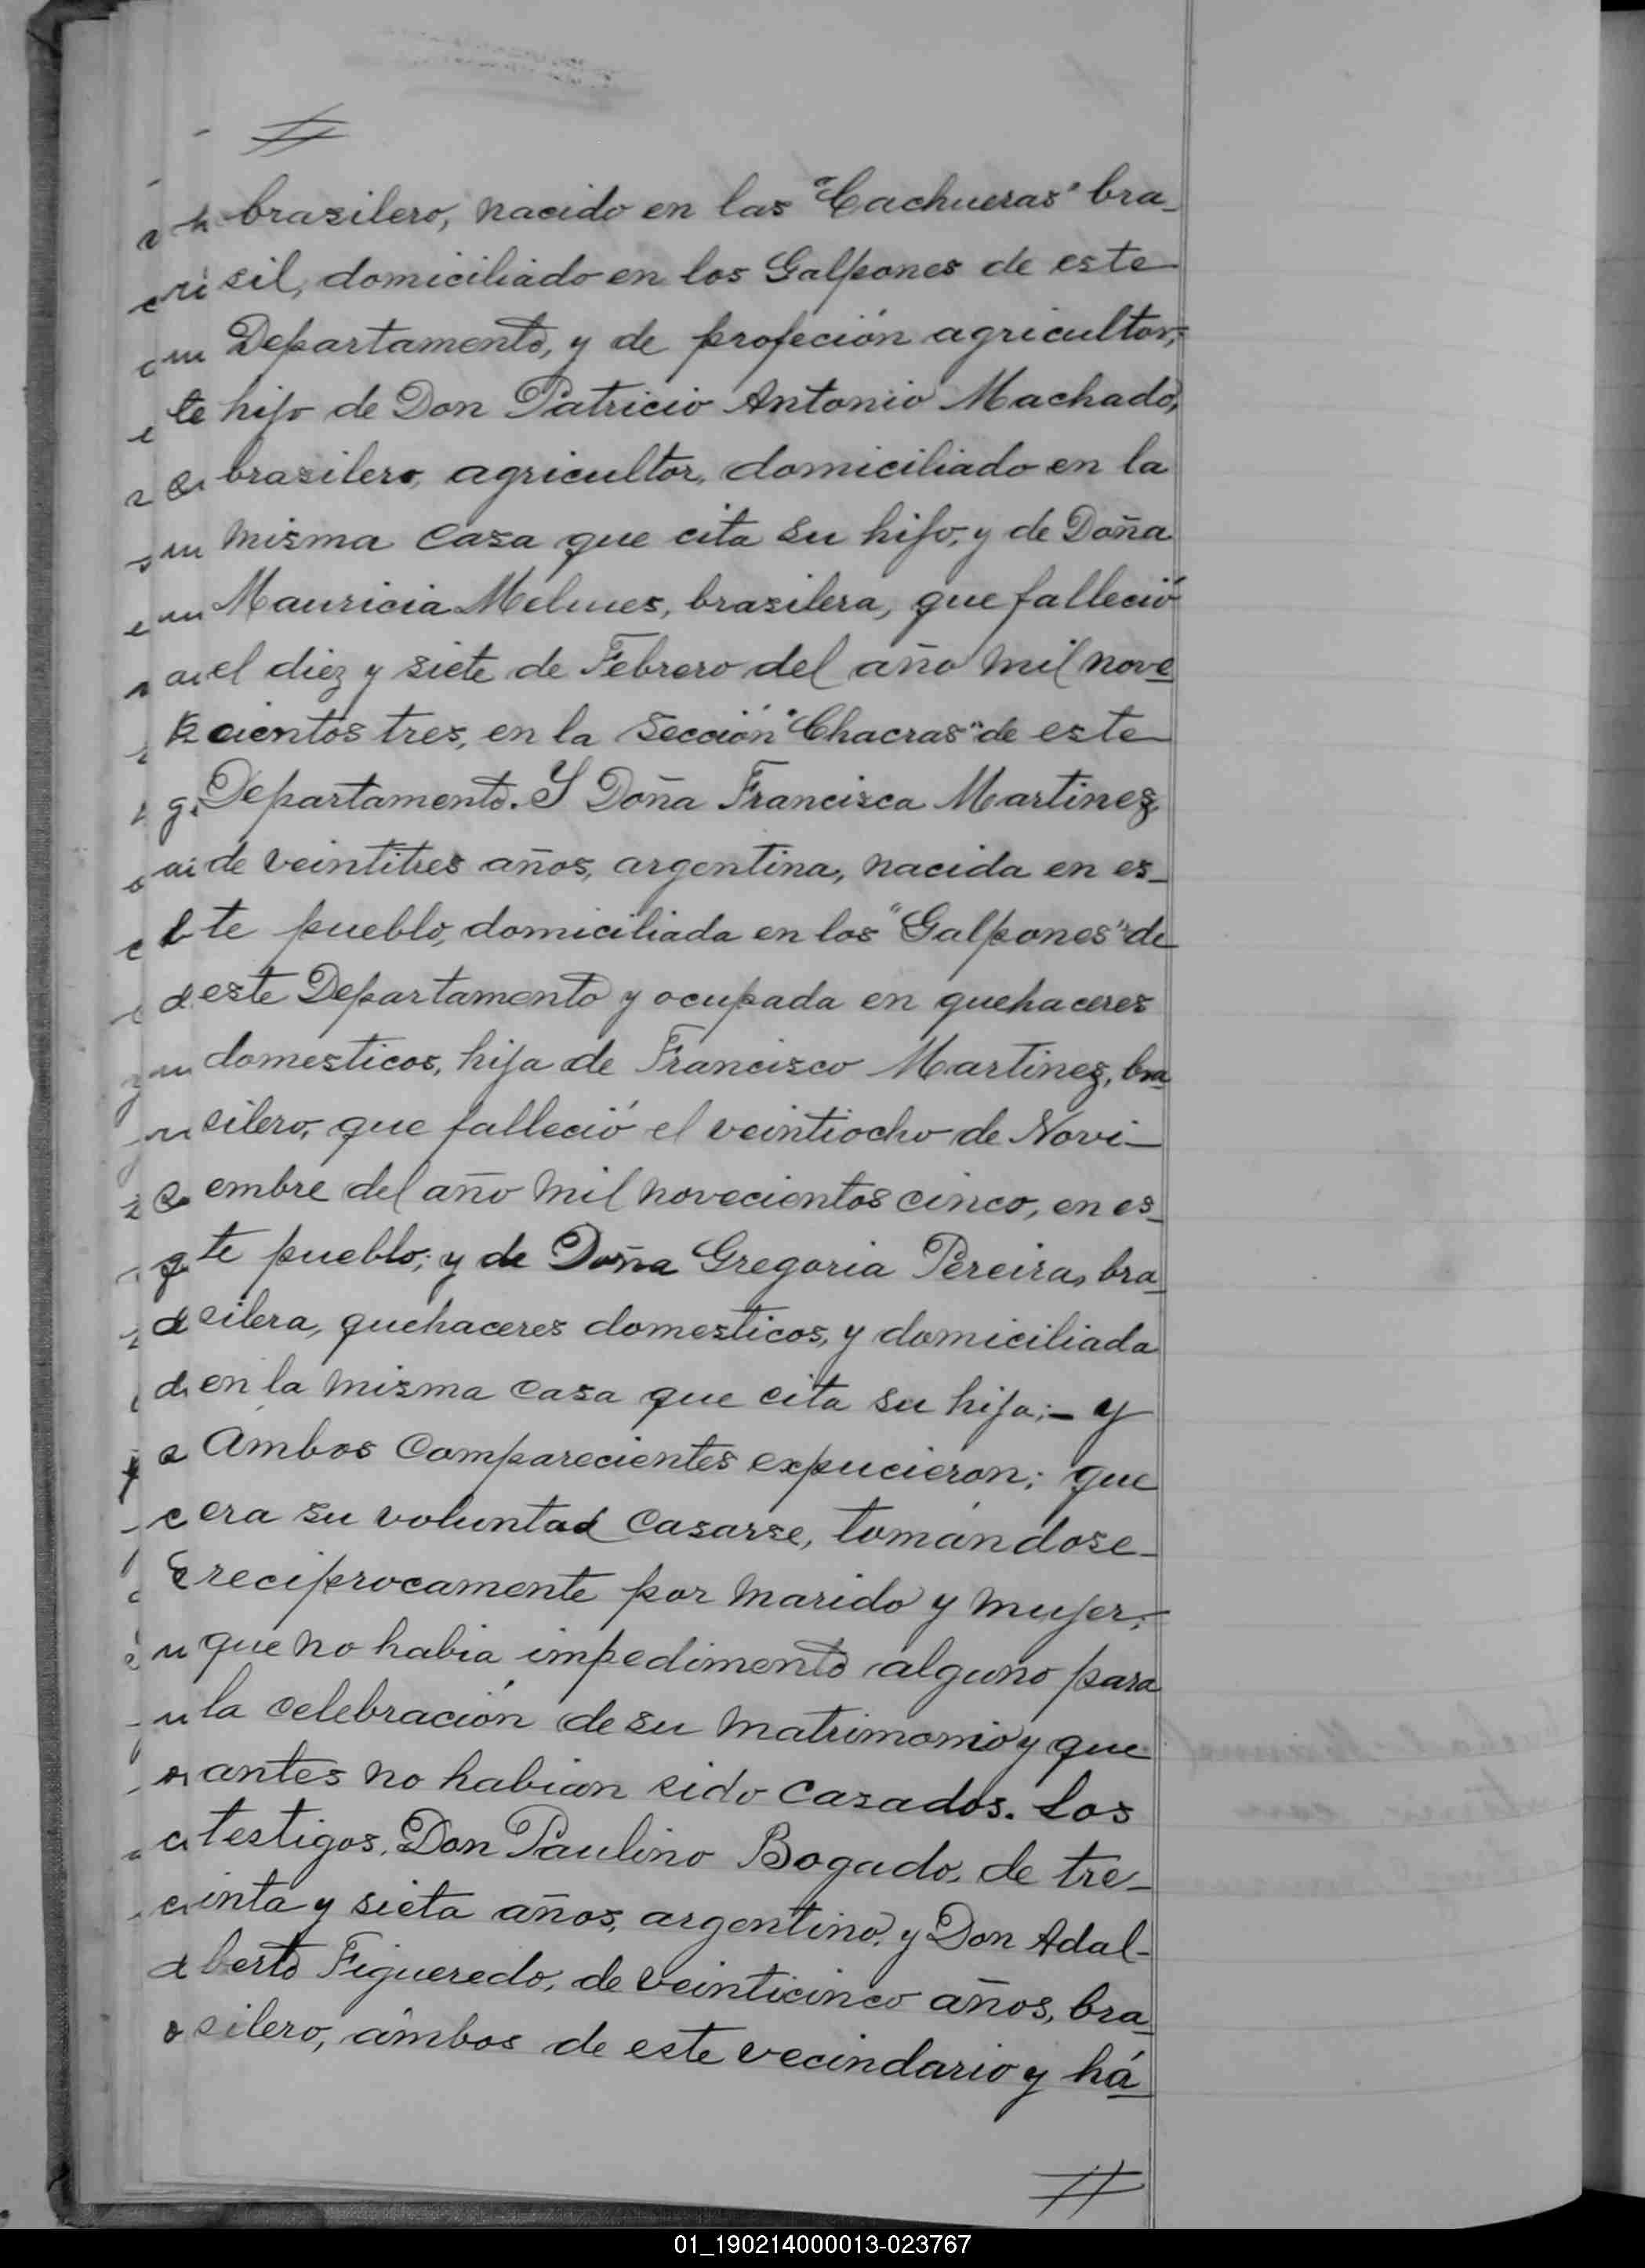 brasilero, nacido en las "Cachueras" bra-
sil, domiciliado en los Galpones de este
Departamento, y de profeción agricultor;
hijo de Don Patricio Antonio Machado,
brasilero, agricultor, domiciliado en la
misma casa que cita su hijo; y de Doña
Mauricia, brasilera, que falleció
el diez y siete de Febrero del año mil nove
cientos tres, en la Sección "Chacras" de este
Departamento. Y Doña Francisca Martinez,
de veintitres años, argentina, nacida en es-
te pueblo, domiciliada en los "Galpones" de
este Departamento y ocupada en quehaceres
domesticos, hija de Francisco Martinez, bra
silero, que falleció el veintiocho de Novi-
embre del año mil novecientos cinco, en es-
te pueblo; y de Doña Gregoria Pereira, bra
silera, quehaceres domesticos, y domiciliada
en la misma casa que cita su hija;- y
ambos comparecientes expucieron; que
era su voluntad casarse, tomándose
reciprocamente por marido y mujer;
que no habia impedimento alguno para
la celebración de su matrimonio y que
antes no habian sido casados. Los
testigos, Don Paulino Bogado, de tre-
inta y sieta años, argentino, y Don Adal-
berto Figueredo, de veinticinco años, bra
silero, ámbos de este vecindario y há
01_190214000013-023767